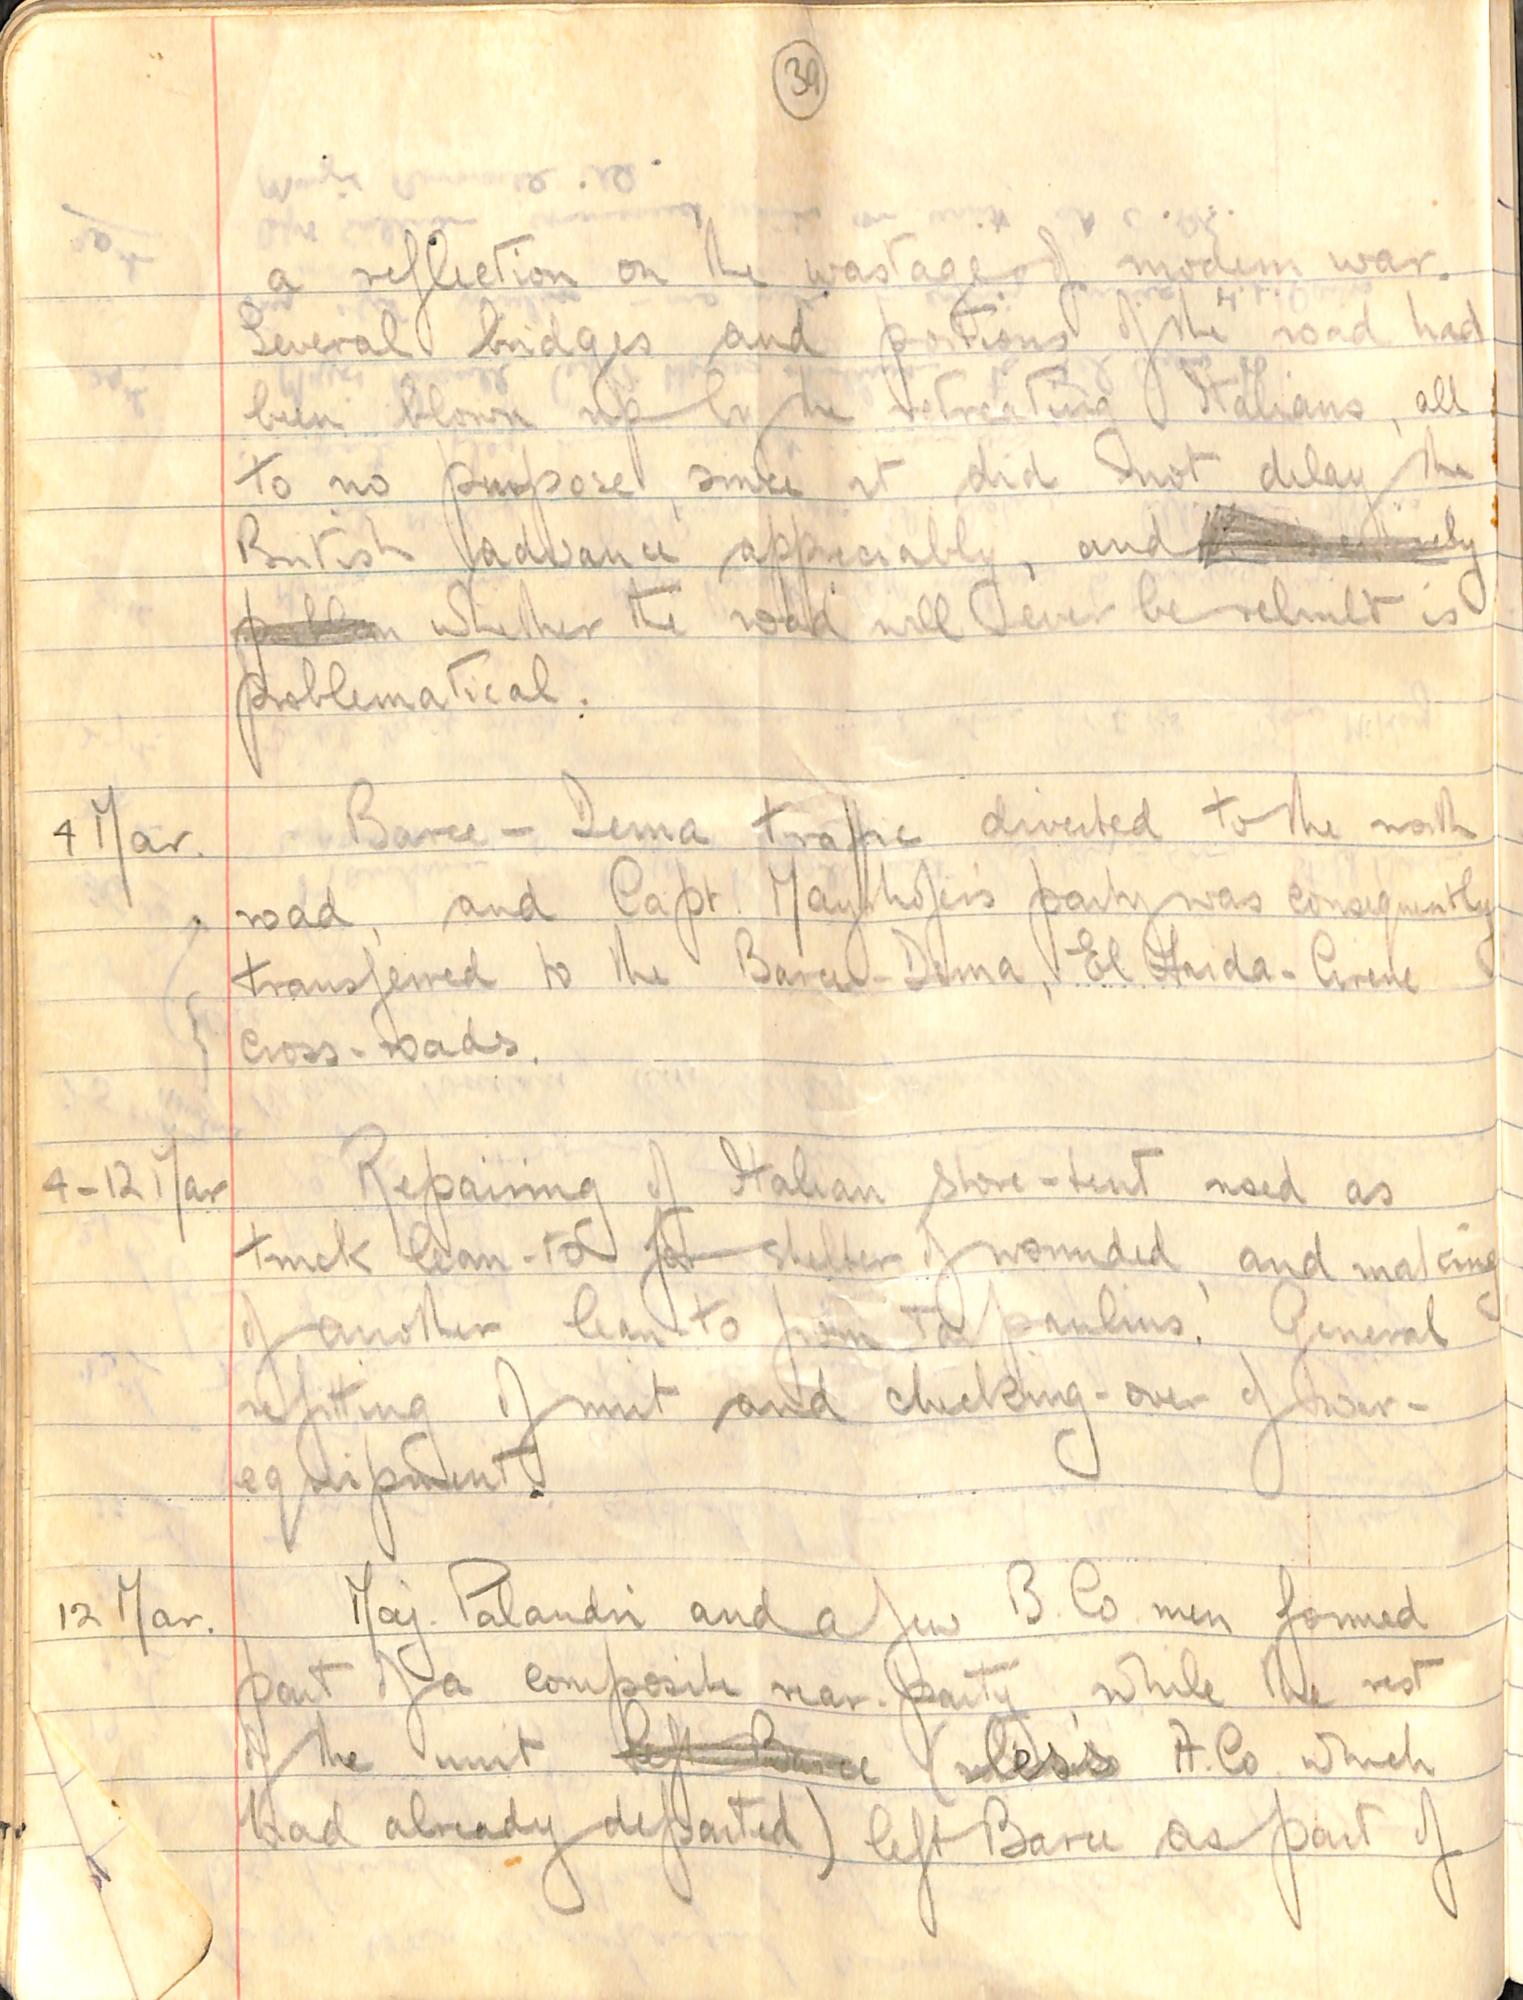 39
a reflection on the wastage of modern war.
Several bridges and portions of the road had
been blown up by the retreating Italians, all
to no purpose, since it did not delay the
British advance appreciably, and
whether the road will ever be rebuilt is
problematical.
4 Mar. Barce - Derna traffic diverted to the north
road, and Capt. Mayrhofer's party was consequently
transferred to the Barce-Derna, El Faida - Cirene
cross-roads.
4-12 Mar Repairing of Italian store-tent used as
truck lean-to for shelter of wounded, and making
of another lean-to from tarpaulins. General
refitting of unit and checking-over of war-
equipment.
12 Mar. Maj. Palandri and a few B. Co men formed
part of a composite rear-party, while the rest
of the unit left Barce (less A. Co. which
had already departed) left Barce as part of